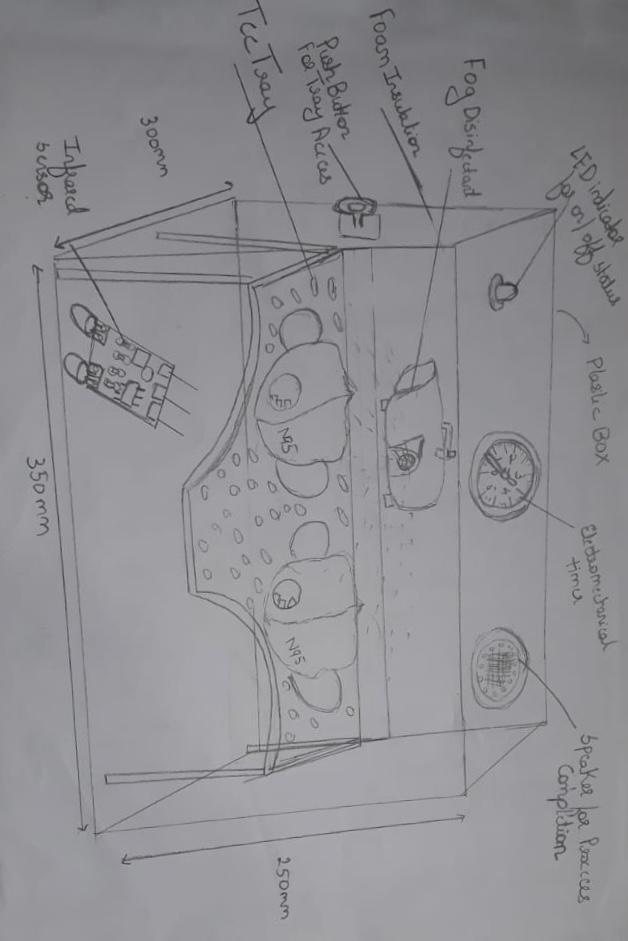 LED indicator
for on/off status
Plastic Box
Electromechanical
timer
Speaker for Process
Completion
Fog Disinfectant
Foam Insulation
Push Button
For Tray Acces
Tcc Tray
N95
N95
250mm
300mm
Infrared
sensor
350mm